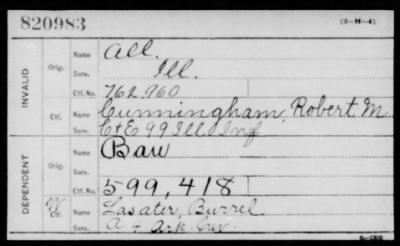 820983
(3-H-4)
INVALID
Orig.
Name All.
Serv. Ill.
Ctf. No. 762,960
Ctf.
Name Cunningham, Robert M.
Serv. C & E 99 Ill Inf
DEPENDENT
Orig.
Name Baw
Serv.
Ctf. No. 599,418
W
Ctf.
Name Lasater, Burrel
Serv. A 4 Ark. Cav.